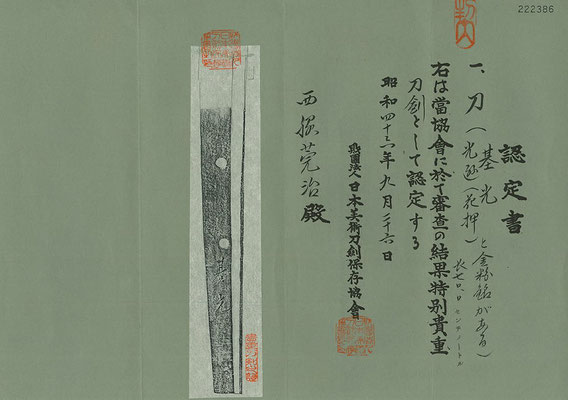 222386
認定書
一、刀(基光
光遜(花押)と金粉銘がある)
長七〇、〇センチメートル
右は當協會に於て審査の結果特别貴重
刀劍として認定する
昭和四十六年九月二十六日
財團法人日本美術刀劍保存協會
西
治殿